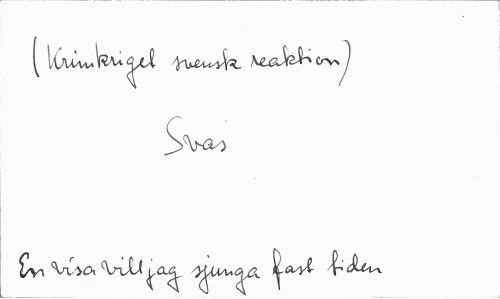 (Krimkriget svensk reaktion)
Svas
En visa vill jag sjunga fast tiden